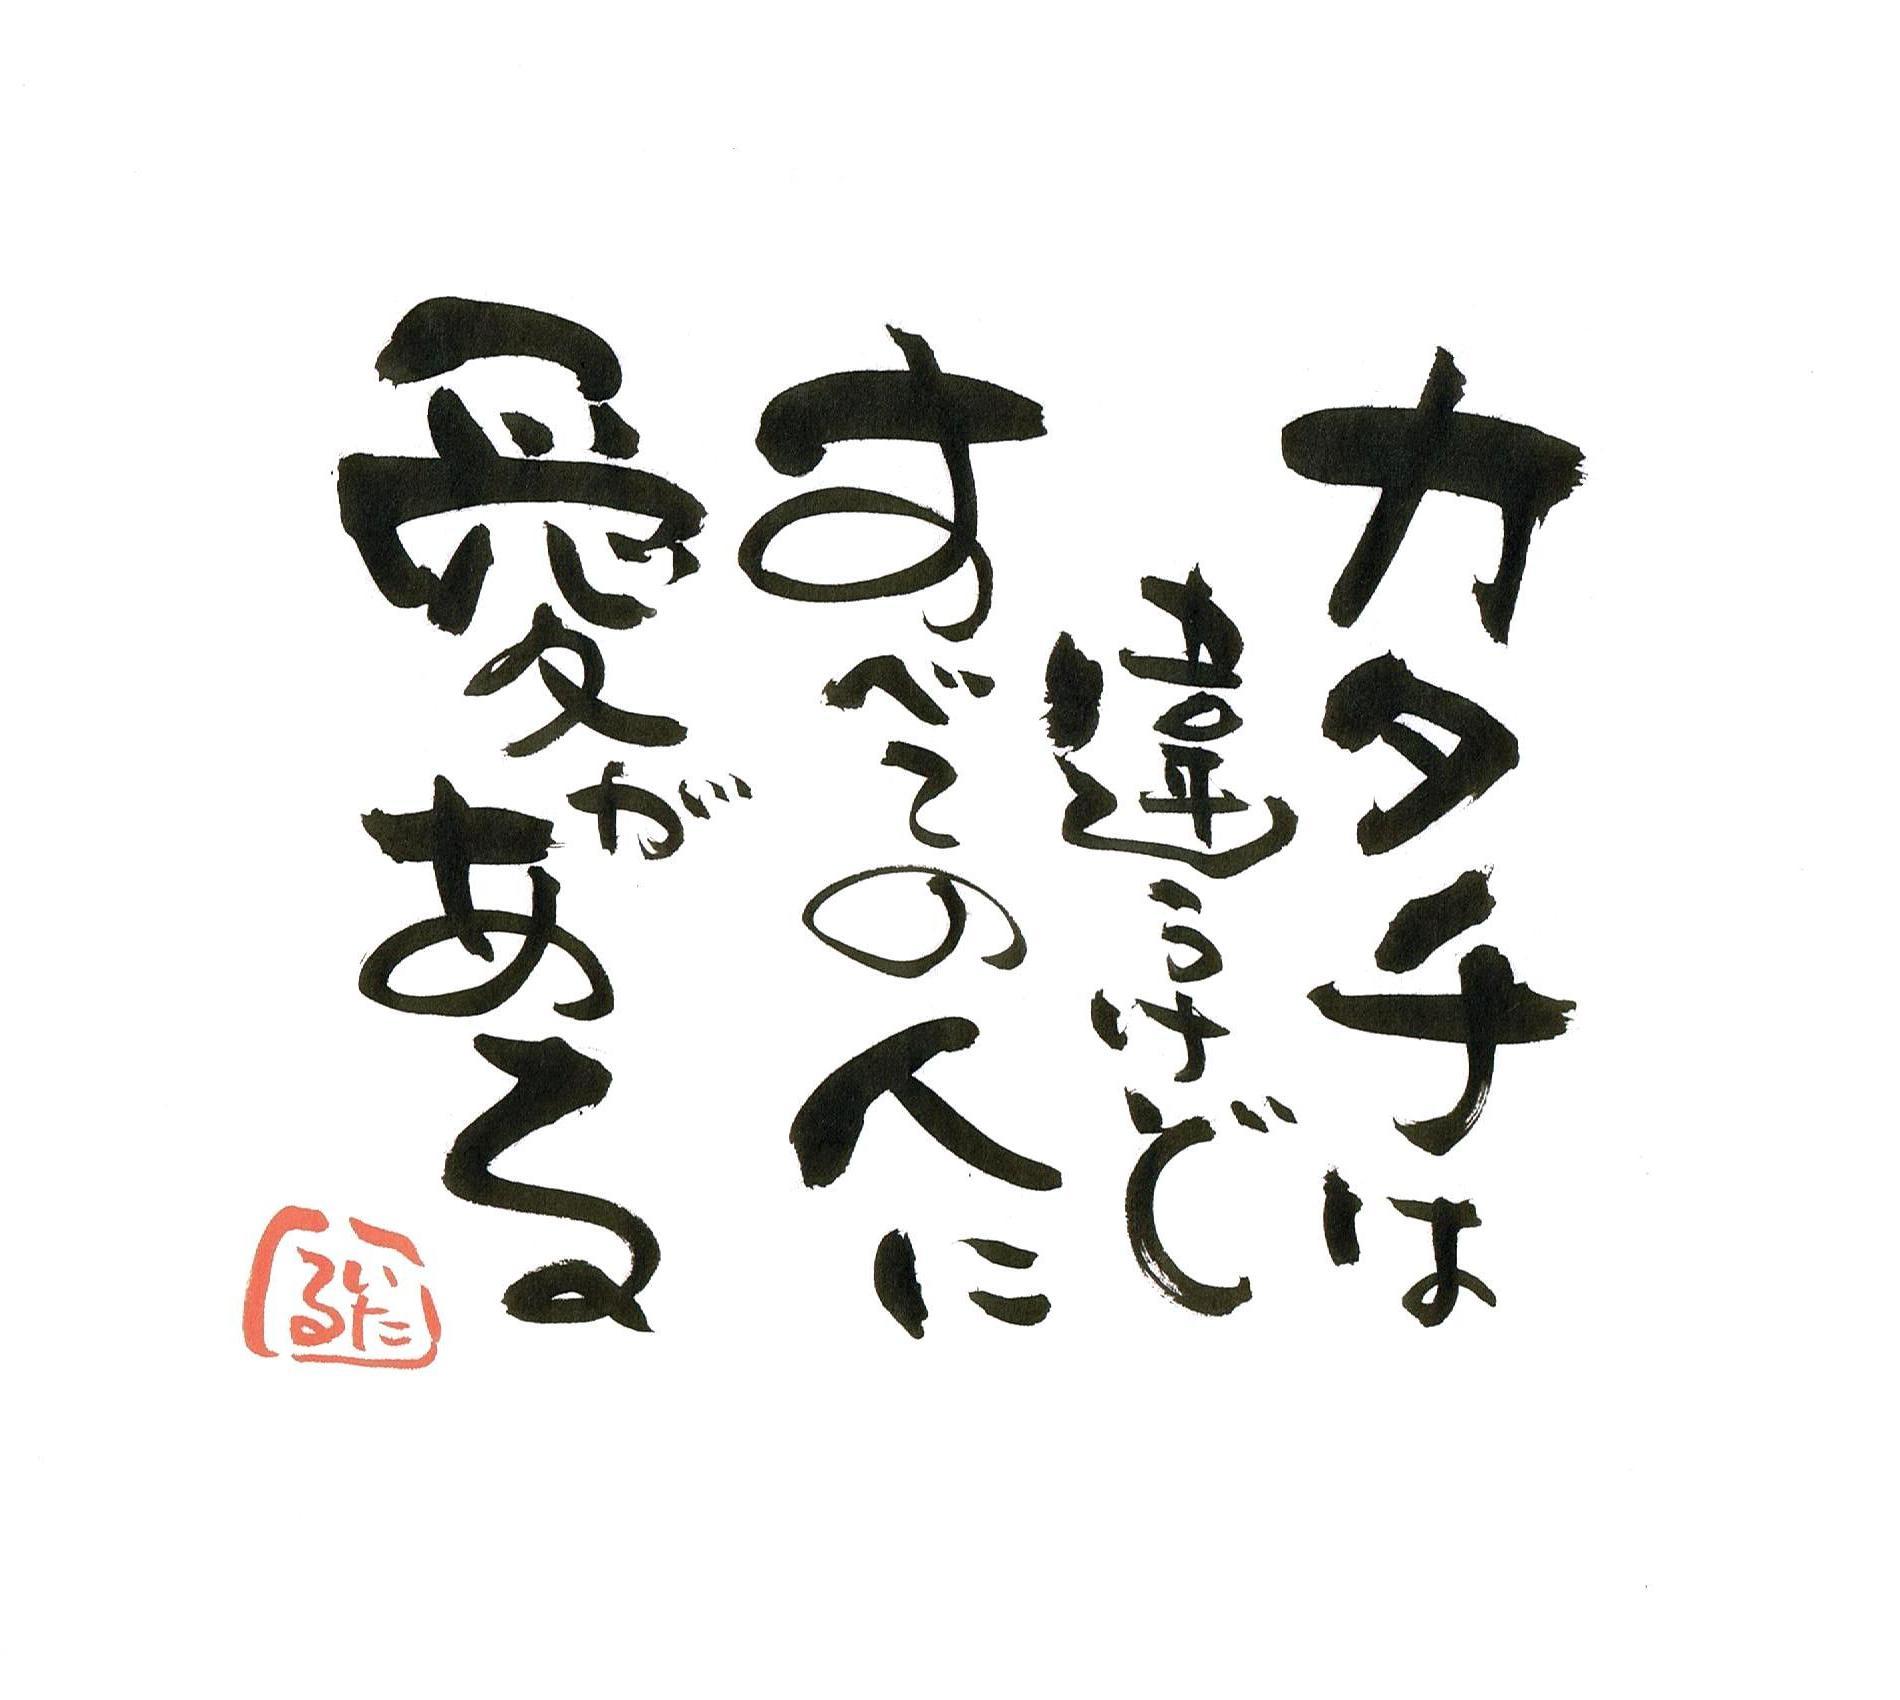 カタチは
違うけど
すべての人に
愛がある
いたる